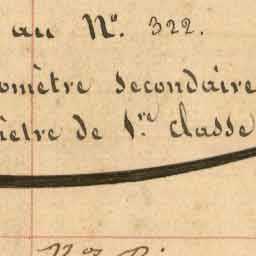 au N°. 322.
omètre secondaire
ietre de 1.re classe